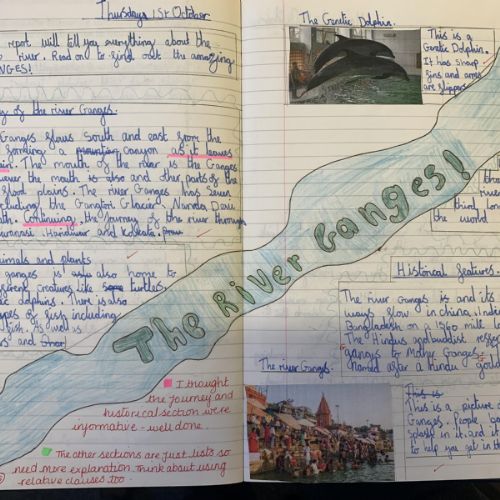 Thursday 1st October
report will tell you everything about the
river. Read on to find out the amazing
NGES!
of the river Ganges.
Ganges flows South and east from the
forming a mountain Canyon as it leaves
The mouth of the river is the Ganges
the mouth is also and other parts of the
flood plains. The river Ganges has seven
the Gangotri Glacier, Nanda Devi
Continuing, the journey of the river through
Haridwar and Kolkata.
nimals and plants
ganges is also home to
creatures like turtles,
dolphins. There is also
types of fish including
fish. As well as
and
The River Ganges!
I thought
the journey and
historical section were
informative - well done.
The other sections are just lists so
need more explanation. Think about using
relative clauses too.
The Genetic Dolphin.
This is a
Genetic Dolphin.
It has sharp
fins and arms
are flippers
third long
the world
Historical features.
The river Ganges is and its
ways flow in china, india
Bangladesh on a 1560 mile
The Hindus goddess
ganges to Mother Ganges.
named after a hindu godde
The river Ganges.
This is
This is a picture o
Ganges. People
Splash in it. and it
to help you get in the